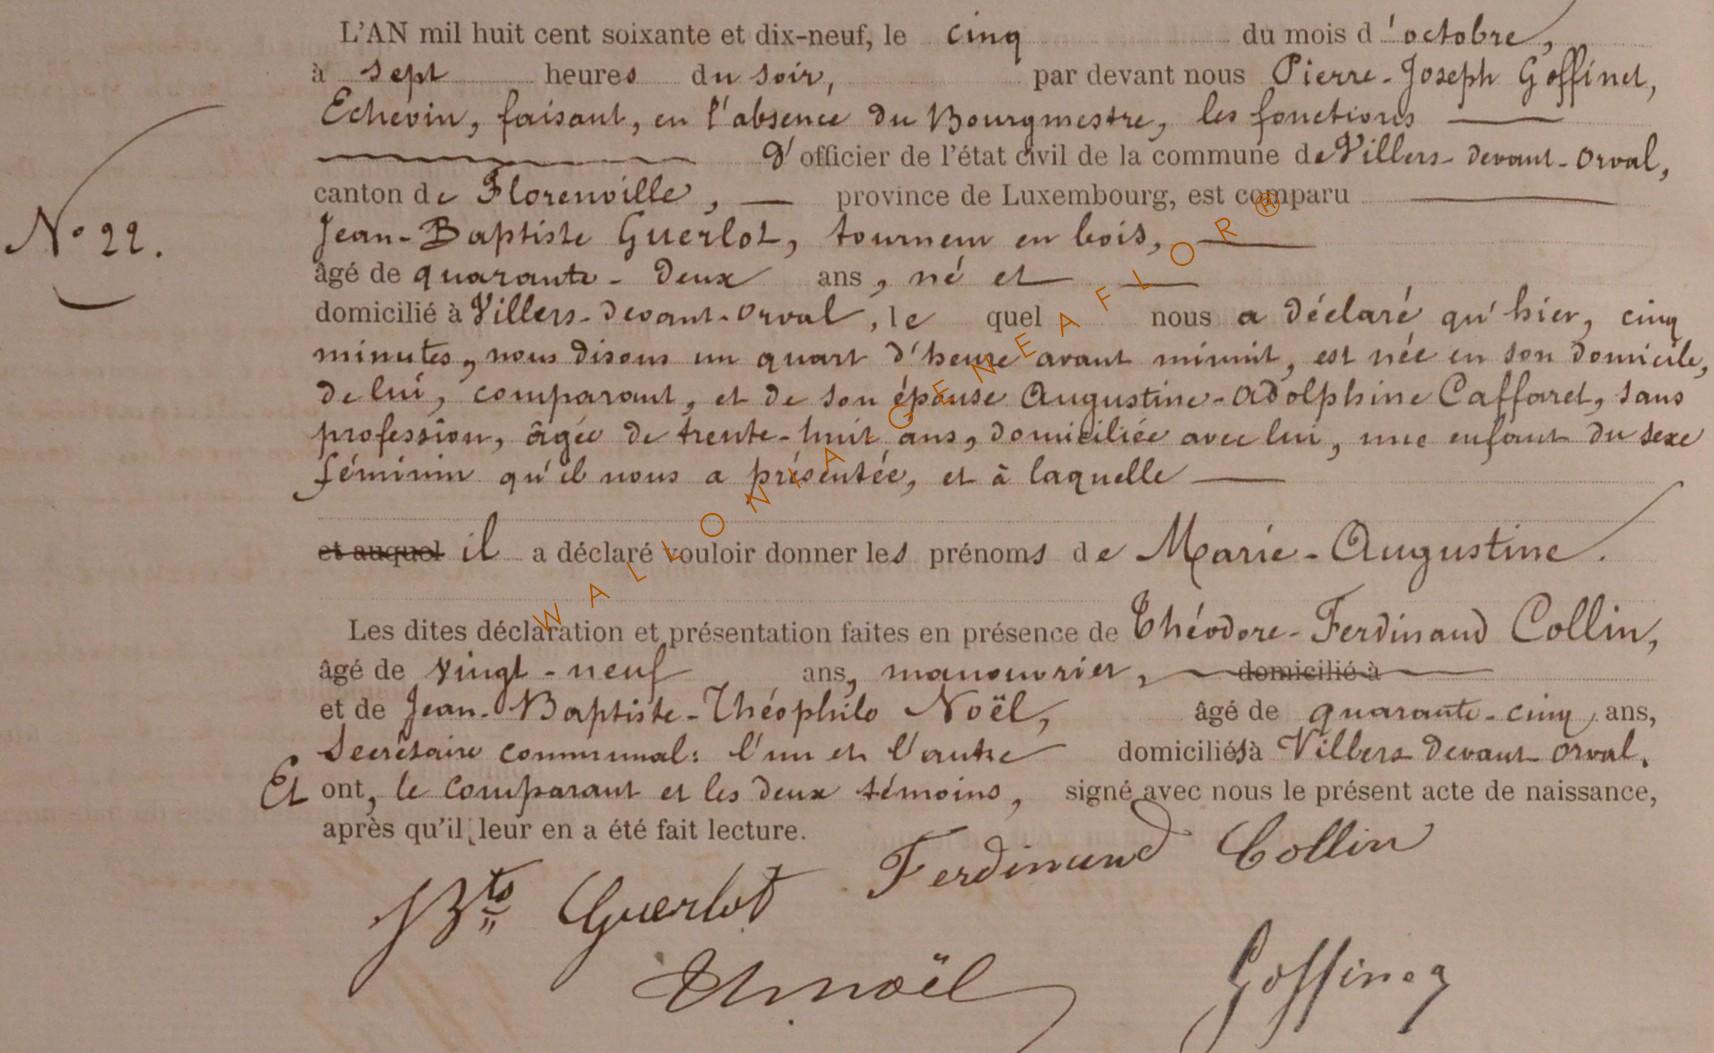 L'AN mil huit cent soixante et dix-neuf, le cinq du mois d'octobre,
à sept heures du soir, par devant nous Pierre-Joseph Goffinet,
Echevin, faisant, en l'absence du Bourgmestre, les fonctions
d'officier de l'état civil de la commune de Villers-devant-Orval,
canton de Florenville, province de Luxembourg, est comparu
N° 22.
Jean-Baptiste Guerlot, tourneur en bois,
âgé de quarante-deux ans, né et
domicilié à Villers-devant-Orval, lequel nous a déclaré qu'hier, cinq
minutes, nous disons un quart d'heure avant minuit, est née en son domicile,
de lui, comparant, et de son épouse Augustine-Adolphine Caffaret, sans
profession, âgée de trente-huit ans, domiciliée avec lui, une enfant du sexe
féminin qu'il nous a présentée, et à laquelle
et auquel il a déclaré vouloir donner les prénoms de Marie-Augustine.
Les dites déclaration et présentation faites en présence de Théodore-Ferdinand Collin,
âgé de vingt-neuf ans, manouvrier, domicilié à
et de Jean-Baptiste-Théophile Noël, âgé de quarante-cinq ans,
Secrétaire communal: l'un et l'autre domiciliés à Villers devant Orval.
Et ont, le comparant et les deux témoins, signé avec nous le présent acte de naissance,
après qu'il leur en a été fait lecture.
JBte Guerlot Ferdinand Collin
Thnoël Goffinet
WALLONIA GENEAFLOR ®